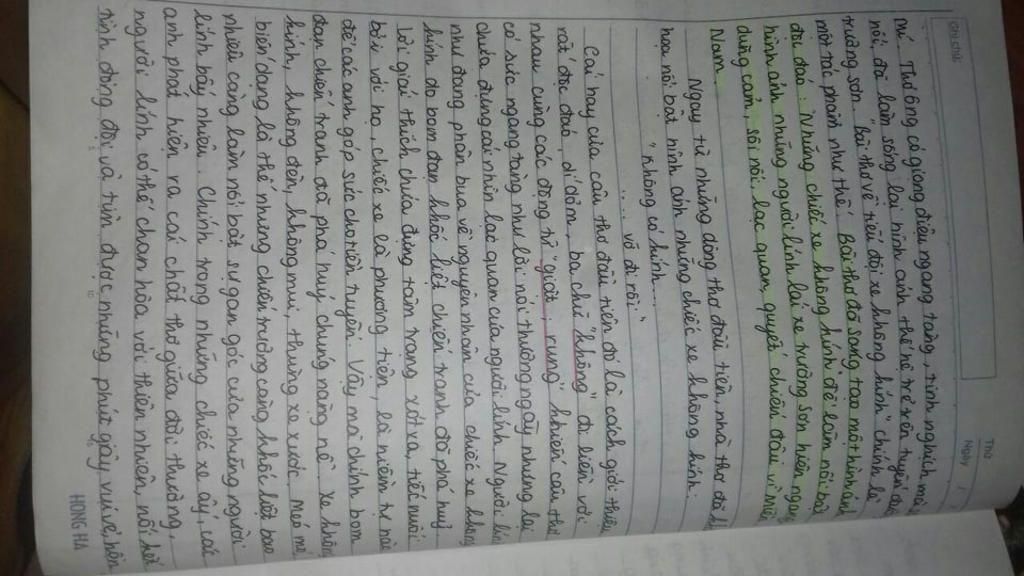 Ghi chú:
Thứ
Ngày
mẻ. Thơ ông có giọng điệu ngang tàng, tinh nghịch mà
nổi, đã làm sống lại hình ảnh thế hệ trẻ trên tuyến đườ
trường sơn. "bài thơ về tiểu đội xe không kính" chính là
một tác phẩm như thế. Bài thơ đã sáng tạo một hình ảnh
độc đáo: Những chiếc xe không kính để làm nổi bậ
hình ảnh những người lính lái xe trường sơn hiên ngang
dũng cảm, sôi nổi, lạc quan, quyết chiến đấu vì miề
Nam.
Ngay từ những dòng thơ đầu tiên, nhà thơ đã
họa nổi bật hình ảnh những chiếc xe không kính:
"không có kính...,
.... vỡ đi rồi."
Cái hay của câu thơ đầu tiên đó là cách giới thiệu
rất độc đáo, dí dỏm, ba chữ "không" đi liền với
nhau cùng các động từ "giật, rung" khiến câu thơ
có sức ngang tàng như lời nói thường ngày nhưng lại
chứa đựng cái nhìn lạc quan của người lính. Người lính
như đang phân bua về nguyên nhân của chiếc xe không
kính do bom đạn khốc liệt chiến tranh đã phá huỷ.
Lời giải thích chứa đựng tâm trạng xót xa, tiếc nuối
bởi với họ, chiếc xe là phương tiện, là niềm tự hào
để các anh góp sức cho tiền tuyến. Vậy mà chính bom
đạn chiến tranh đã phá huỷ chúng nặng nề. Xe không
kính, không đèn, không mui, thùng xe xước. Méo mó
biến dạng là thế nhưng chiến trường càng khốc liệt bao
nhiêu càng làm nổi bật sự gan góc của những người
lính bấy nhiêu. Chính trong những chiếc xe ấy, các
anh phát hiện ra cái chất thơ giữa đời thường,
người lính có thể chan hòa với thiên nhiên, nối kết
tình đồng đội và tìm được những phút giây vui vẻ, hồn
HONG HA